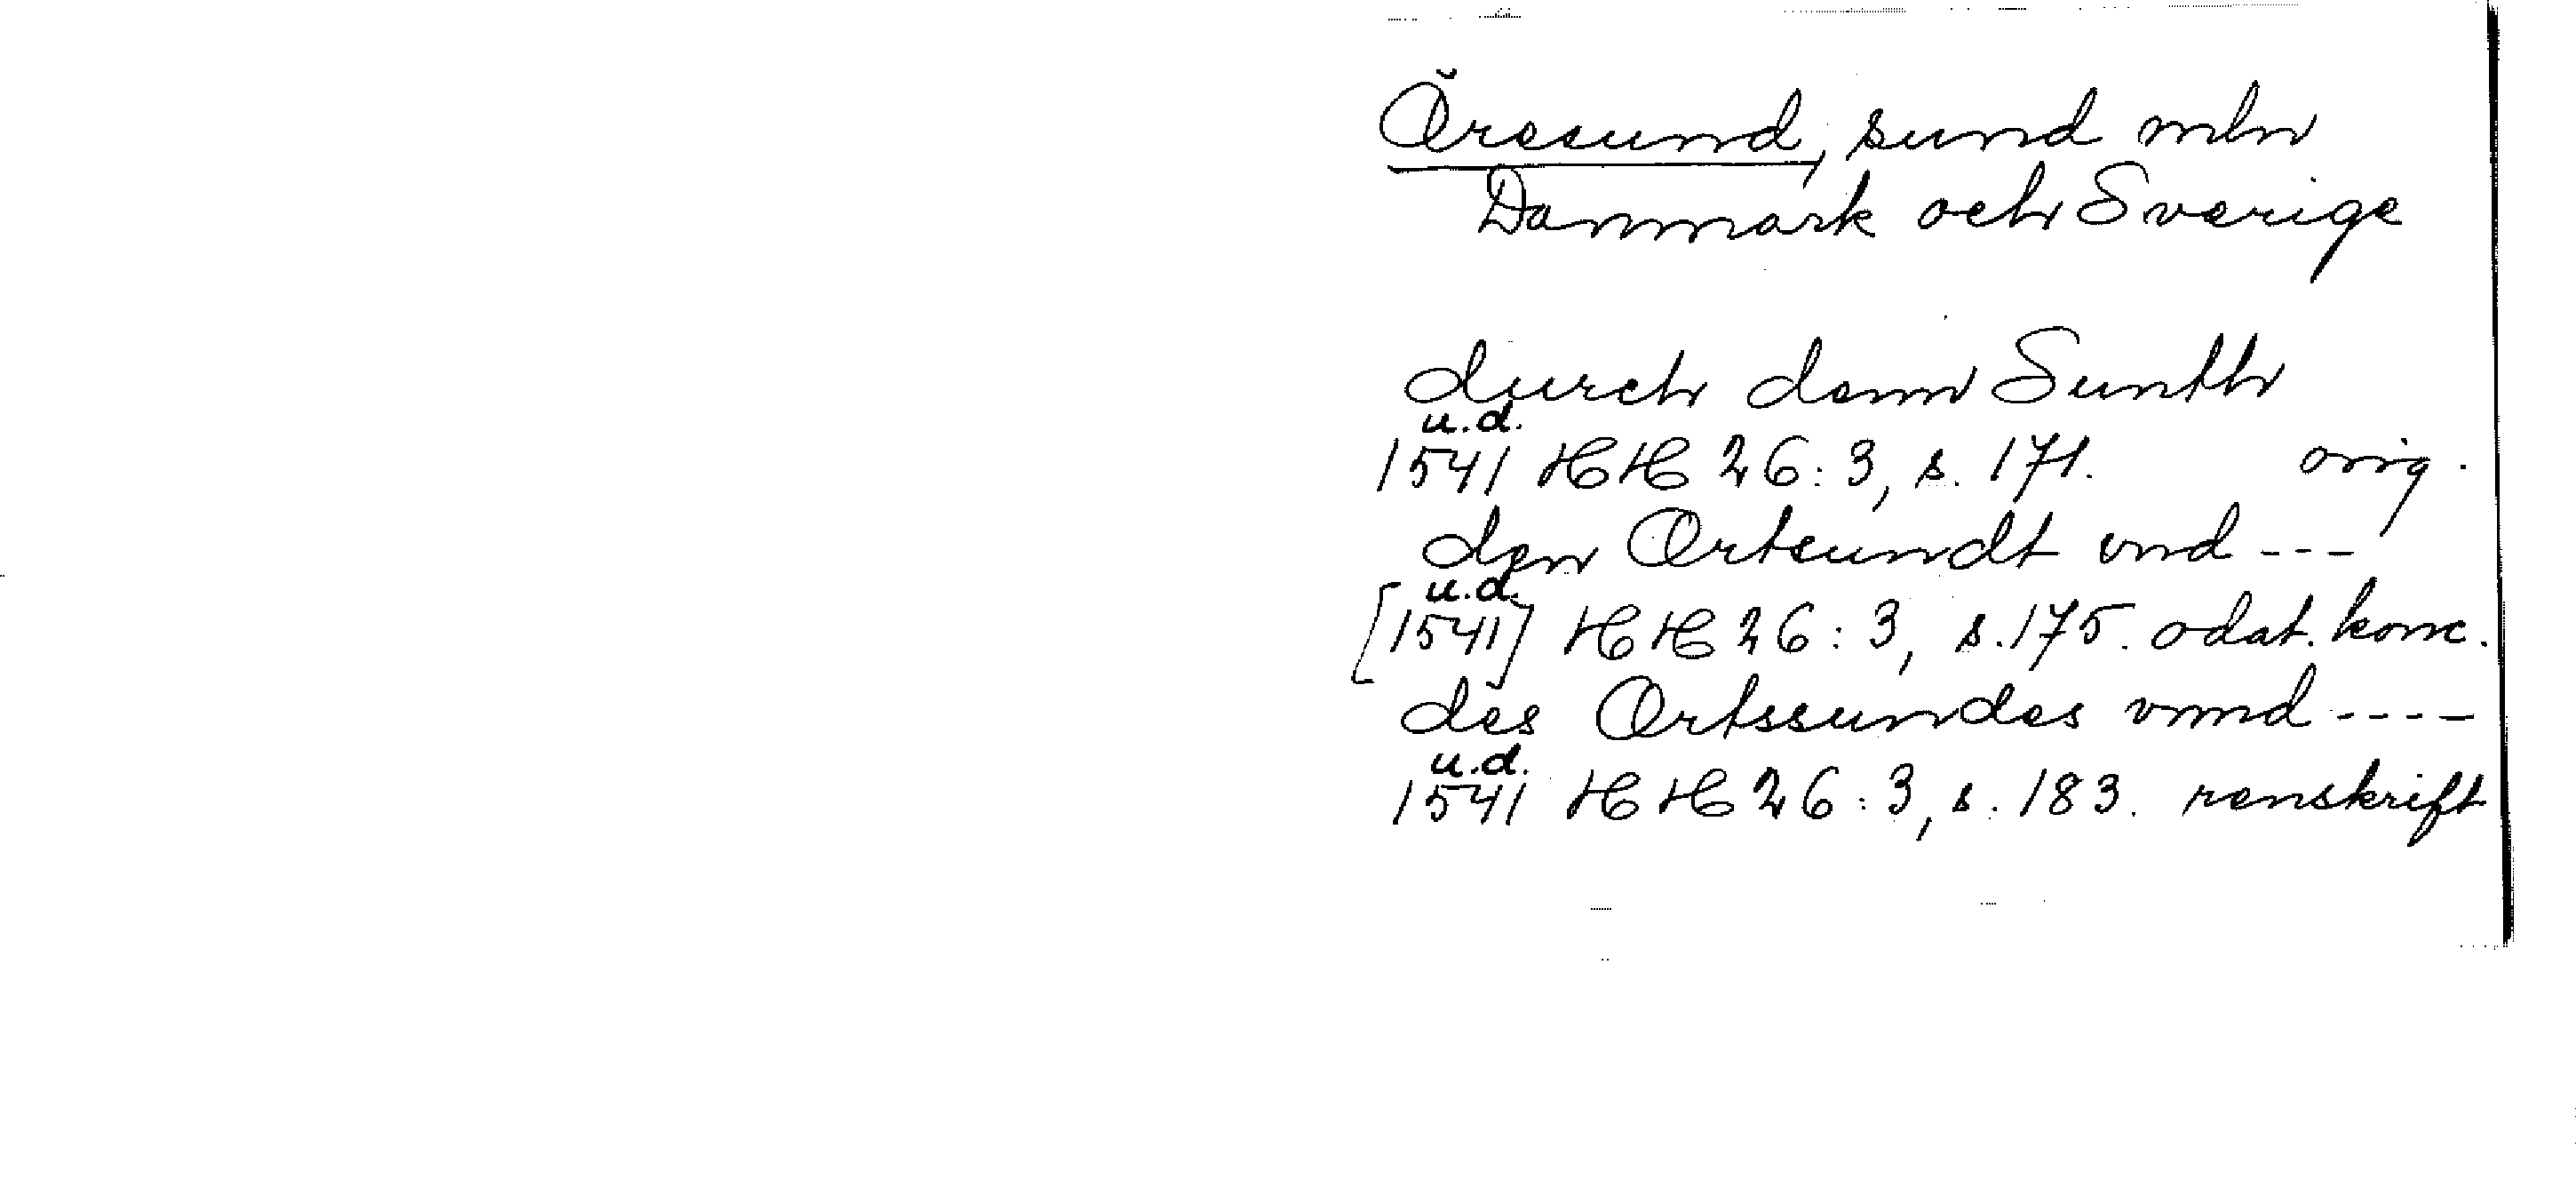 Öresund, sund mln
Danmark och Sverige
durch denn Sunth
u.d.
1541 HH 26:3, s. 171. orig.
den Ortsundt vnd ---
u.d.
[1541] HH 26:3, s. 175. odat. konc.
des Ortssundes vnnd ----
u.d.
1541 HH 26:3, s. 183. renskrift